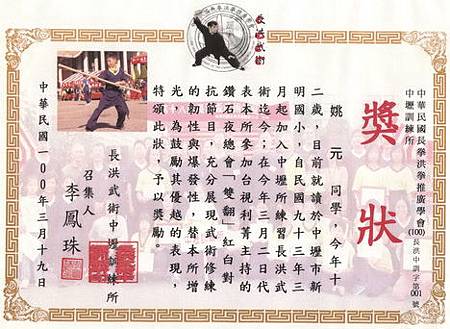 長洪武術
中華民國長拳洪拳推廣學會
中壢訓練所
(100)長洪中訓字第001號
獎狀
姚元同學，今年十
二歲，目前就讀於中壢市新
明國小，自民國九十三年三
月起加入中壢所練習長洪武
術迄今；在今年三月二日代
表本所參加台視利菁主持的
鑽石夜總會「雙翻」紅白對
抗節目，充分展現武術修練
的韌性與爆發性，替本所增
光，為鼓勵其優越的表現，
特頒此狀，予以獎勵。
長洪武術中壢訓練所
召集人 李鳳珠
中華民國一00年三月十九日